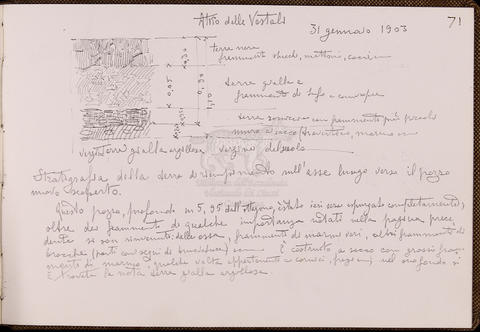 Atrio delle Vestali
31 gennaio 1903
71
terra nera
frammenti stucchi, mattoni,
0,30
terra gialla e
frammenti di tufo e
0,65
0,90
1,10
terra con frammenti più piccoli
muro a secco travertino, marmo
terra gialla argillosa vergine
Stratigrafia della terra di riempimento sull'asse lungo verso il pozzo
scoperto.
Questo pozzo, profondo m 5,95 è stato ieri espurgato completamente,
oltre dei frammenti di qualche importanza notati nella pagina prece,
dente si son rinvenuti delle ossa, frammenti di marmi vari, altri frammenti di
brocche (parti con segni di È costruito a secco con grossi fram
menti di marmo, qualche volta appartenenti a cornici, nel cui fondo si
è trovata la nota terra gialla argillosa.